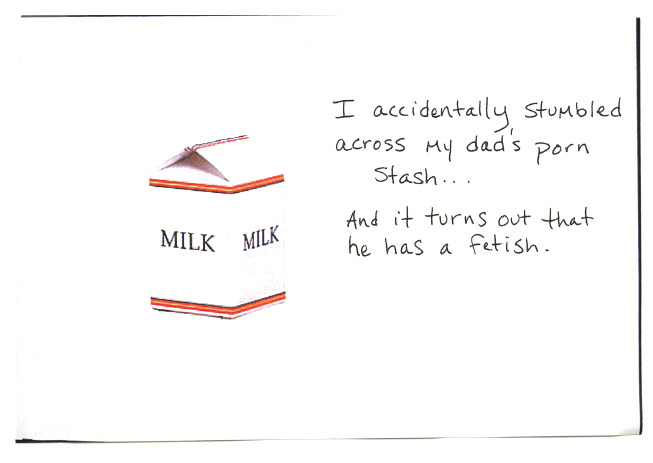 MILK MILK
I accidentally stumbled
across my dad's porn
stash...
And it turns out that
he has a fetish.